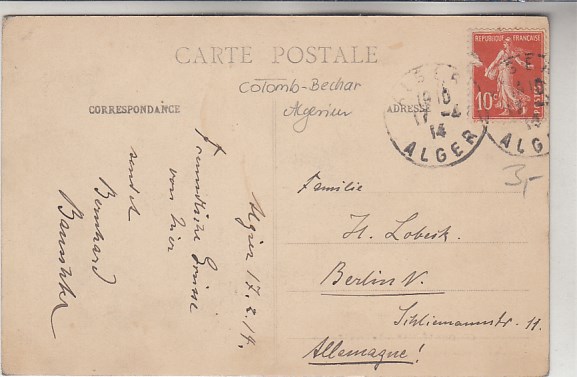 CARTE POSTALE
Colomb-Bechar
Algerien
CORRESPONDANCE
ADRESSE
REPUBLIQUE FRANÇAISE
10c
POSTES
17 -4
14
ALGER
ALGER
3,-
Algier 17. 2. 14.
Freundliche Grüsse
von hier
sendet
Bernhard
Familie
H. Lobeck.
Berlin N.
Schliemannstr. 11.
Allemagne!